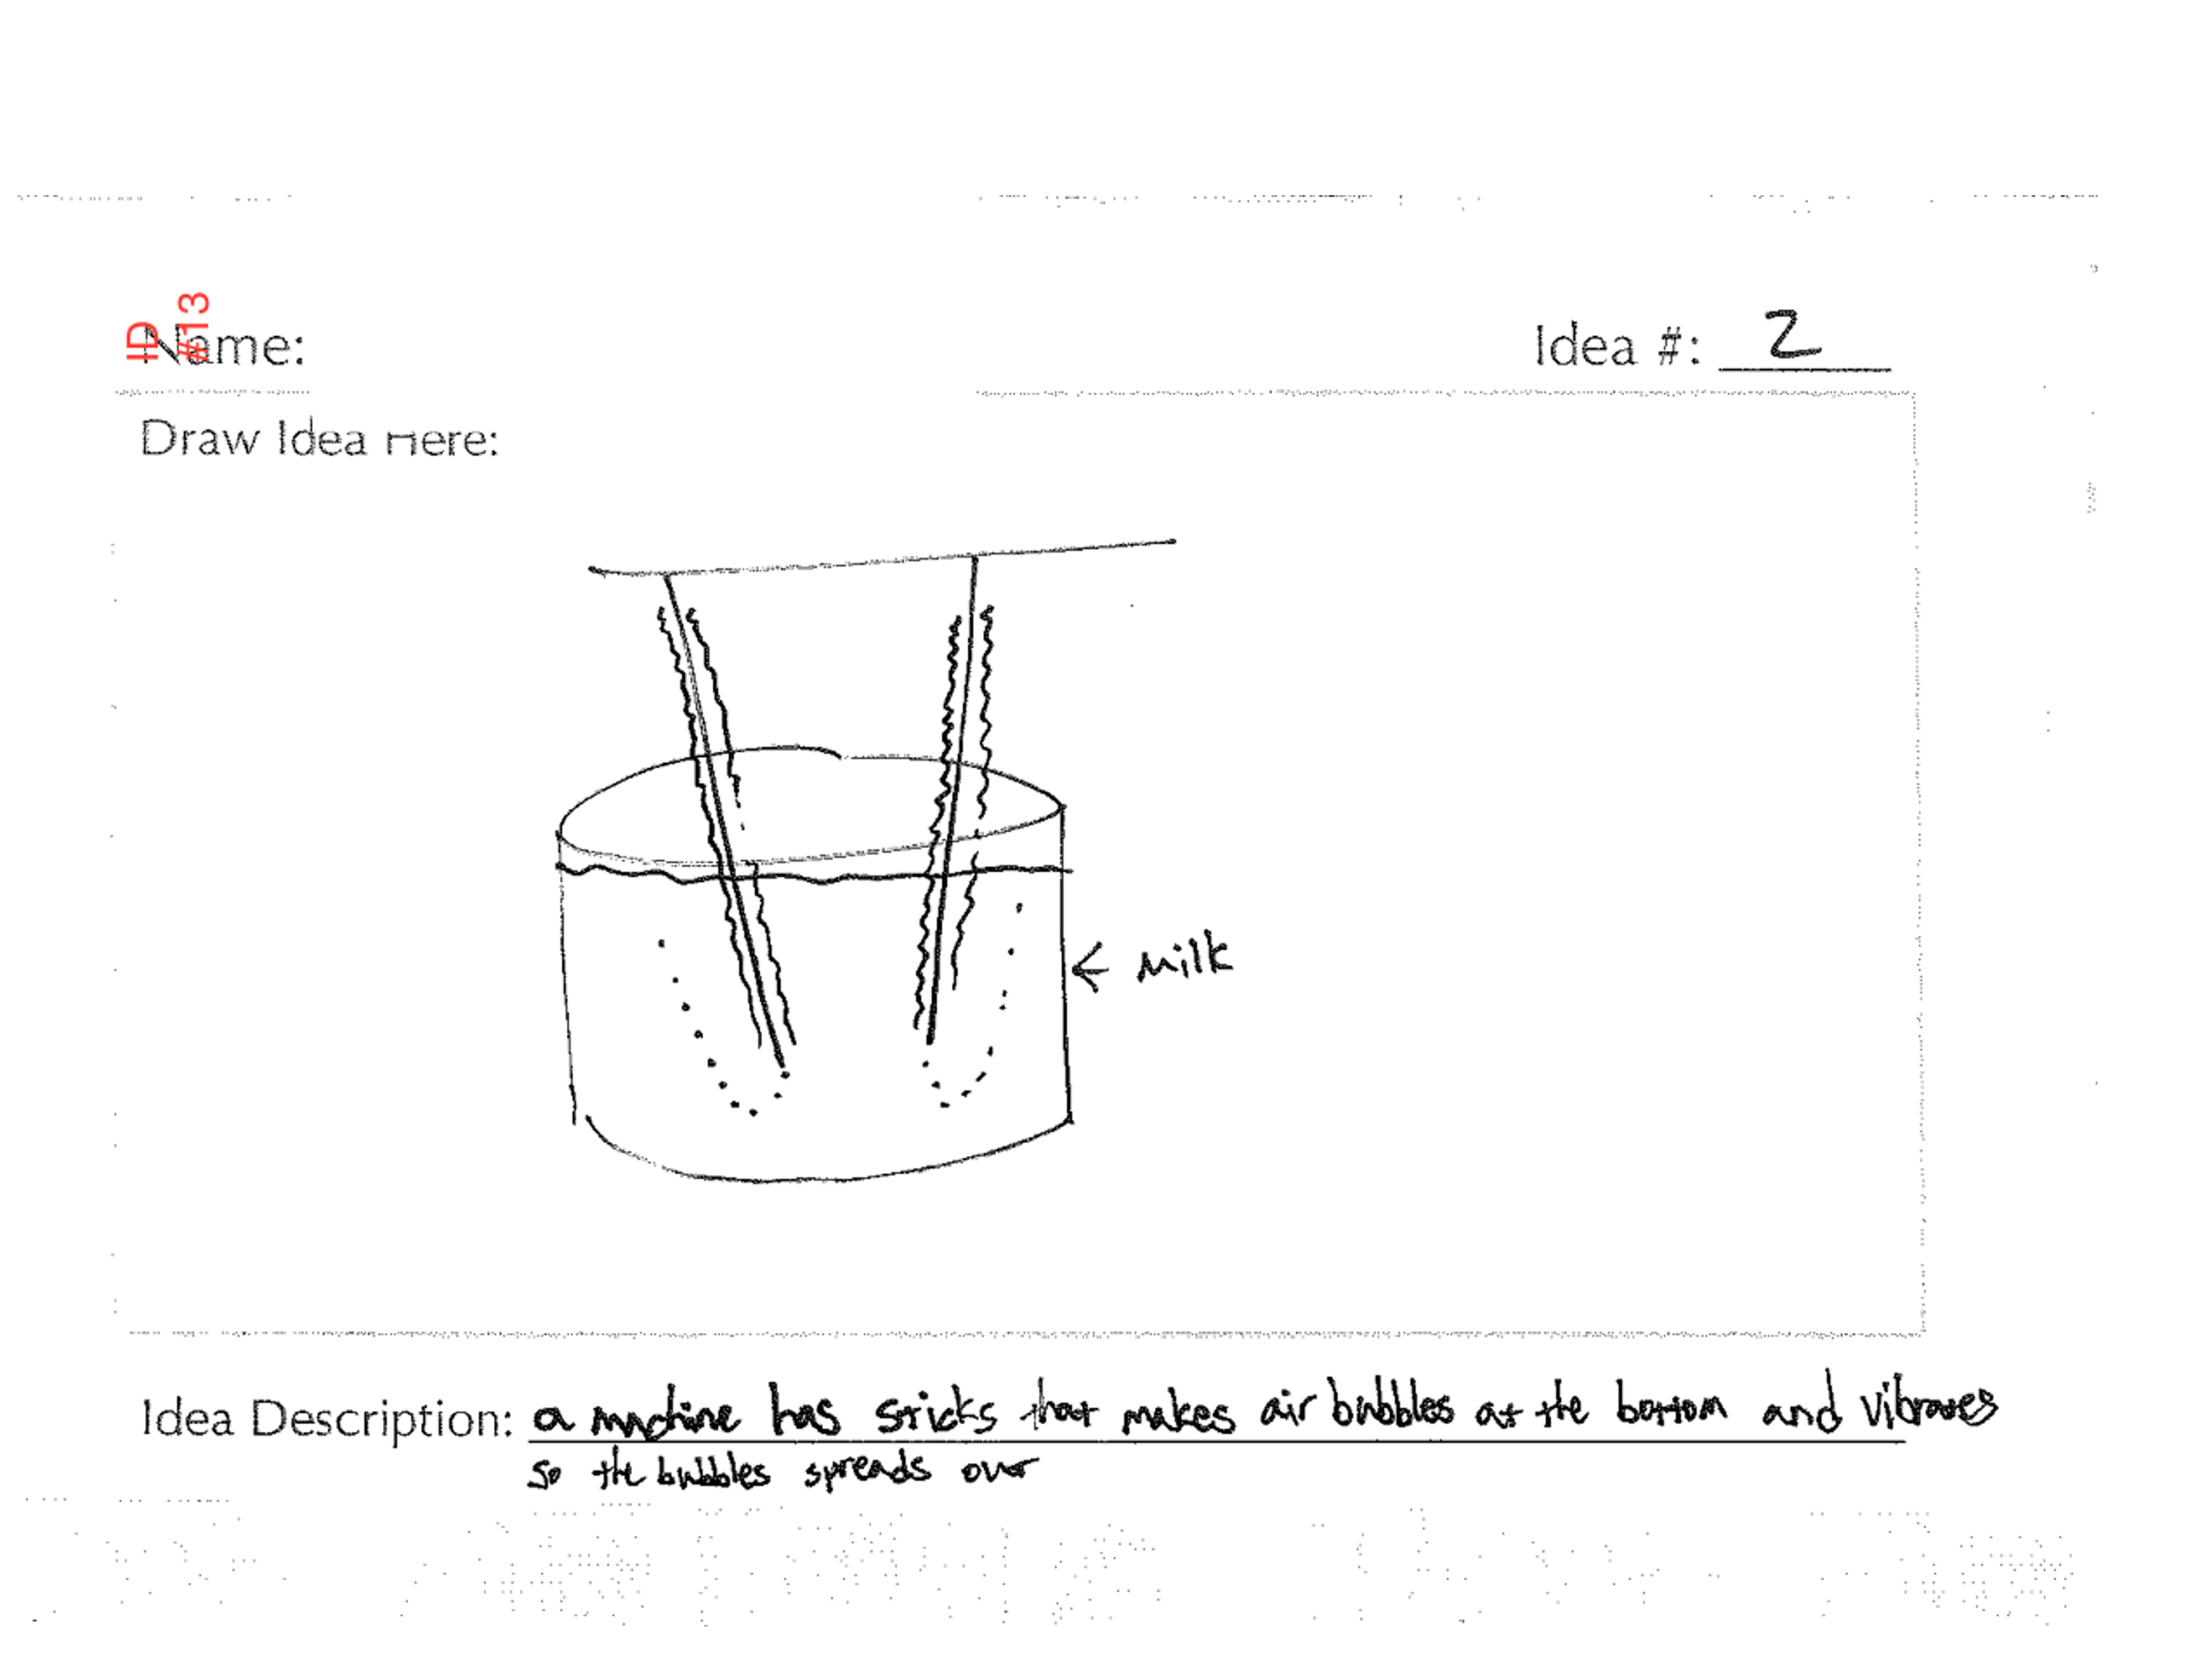 ID
#13
Name:
Idea #: 2
Draw Idea Here:
← Milk
Idea Description: a machine has sticks that makes air bubbles at the bottom and vibrates
so the bubbles spreads over